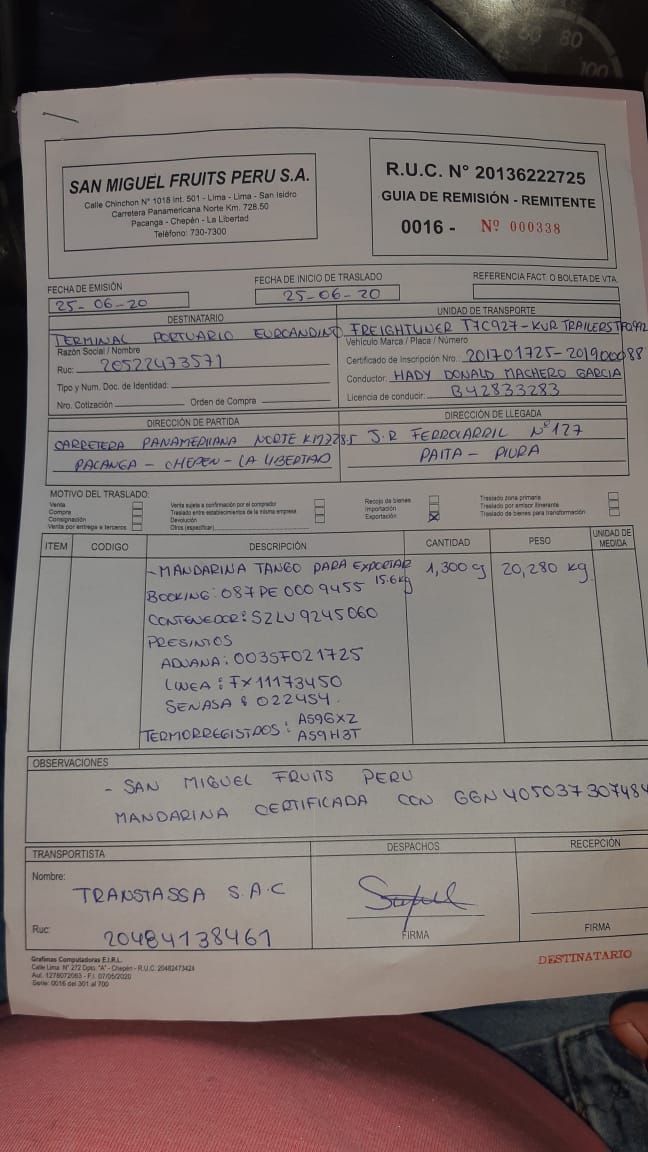 80
100
SAN MIGUEL FRUITS PERU S.A.
Calle Chinchon N° 1018 Int. 501 - Lima - Lima - San Isidro
Carretera Panamericana Norte Km. 728.50
Pacanga - Chepén - La Libertad
Teléfono: 730-7300
R.U.C. N° 20136222725
GUIA DE REMISIÓN - REMITENTE
0016 - Nº 000338
FECHA DE EMISIÓN
25-06-20
FECHA DE INICIO DE TRASLADO
25-06-20
REFERENCIA FACT. O BOLETA DE VTA.
DESTINATARIO
TERMINAL PORTUARIO EUROANDINO
Razón Social / Nombre
Ruc: 20522473571
Tipo y Num. Doc. de Identidad:
Nro. Cotización Orden de Compra
UNIDAD DE TRANSPORTE
FREIGHTLINER T7C927 - KUR TRAILERS TFO992
Vehículo Marca / Placa / Número
Certificado de Inscripción Nro.: 201701725-201900088
Conductor: HADY DONALD MACHERO GARCIA
Licencia de conducir: B42833283
DIRECCIÓN DE PARTIDA
CARRETERA PANAMERICANA NORTE KM 728.5
PACANGA - CHEPEN - LA LIBERTAD
DIRECCIÓN DE LLEGADA
J.R FERROCARRIL N°127
PAITA - PIURA
MOTIVO DEL TRASLADO:
Venta
Compra
Consignación
Venta por entrega a terceros
Venta sujeta a confirmación por el comprador
Traslado entre establecimientos de la misma empresa
Devolución
Otros (especificar)
Recojo de bienes
Importación
Exportación X
Traslado zona primaria
Traslado por emisor itinerante
Traslado de bienes para transformación
ITEM CODIGO DESCRIPCIÓN CANTIDAD PESO UNIDAD DE MEDIDA
- MANDARINA TANGO PARA EXPORTAR 15.6kg 1,300 g 20,280 kg
BOOKING: 087PE0009455
CONTENEDOR: SZLU 9245060
PRESINTOS
ADUANA: 0035F021725
LINEA: FX11173450
SENASA: 022454.
TERMORREGISTROS: AS9GXZ
AS9H3T
OBSERVACIONES
- SAN MIGUEL FRUITS PERU
MANDARINA CERTIFICADA CON GGN 405037307484
TRANSPORTISTA
Nombre:
TRANSTASSA S.A.C
Ruc: 20484138461
DESPACHOS
FIRMA
RECEPCIÓN
FIRMA
Grafimas Computadoras E.I.R.L.
Calle Lima N° 272 Dpto. "A" - Chepén - R.U.C. 20482473424
Aut. 1278072063 - F.I. 07/05/2020
Serie: 0016 del 301 al 700
DESTINATARIO